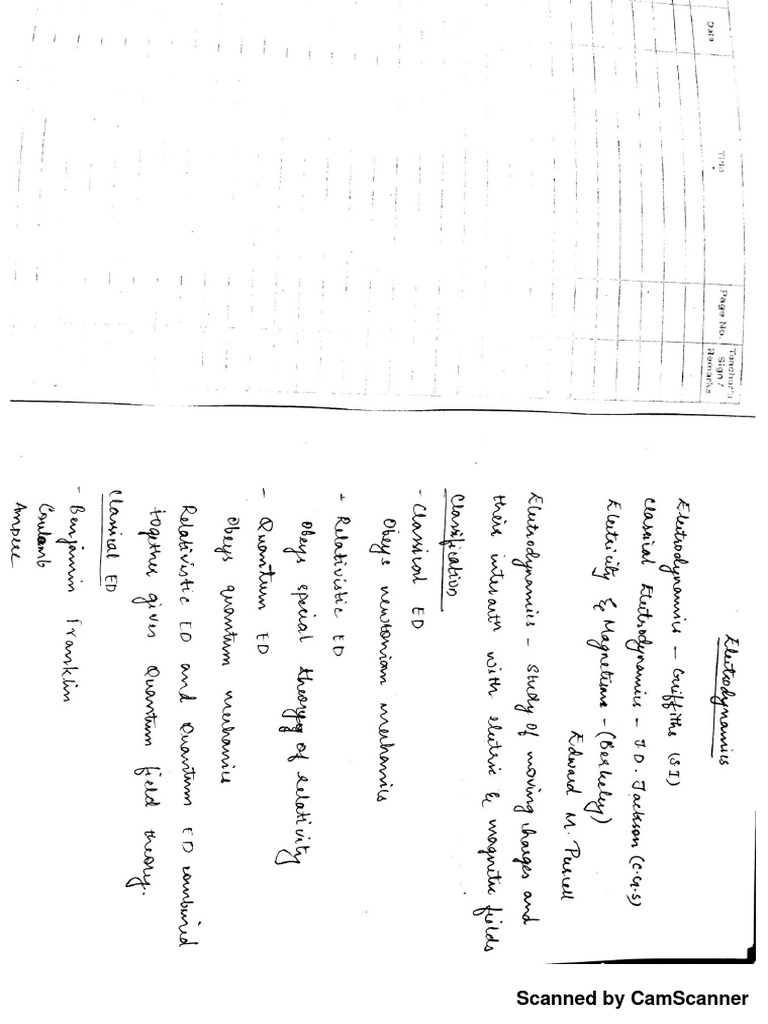 Date
Title
Page No.
Teacher's
Sign /
Remarks
Electrodynamics
Electrodynamics - Griffiths (S.I)
Classical Electrodynamics - J.D. Jackson (C.G.S)
Electricity & Magnetism - (Berkeley)
Edward M. Purcell
Electrodynamics - Study of moving charges and
their interactn with electric & magnetic fields
Classification
- Classical ED
Obeys newtonian mechanics
- Relativistic ED
Obeys special theory of relativity
- Quantum ED
Obeys quantum mechanics
Relativistic ED and Quantum ED combined
together gives Quantum field theory.
Classical ED
- Benjamin Franklin
Coulomb
Ampere
Scanned by CamScanner